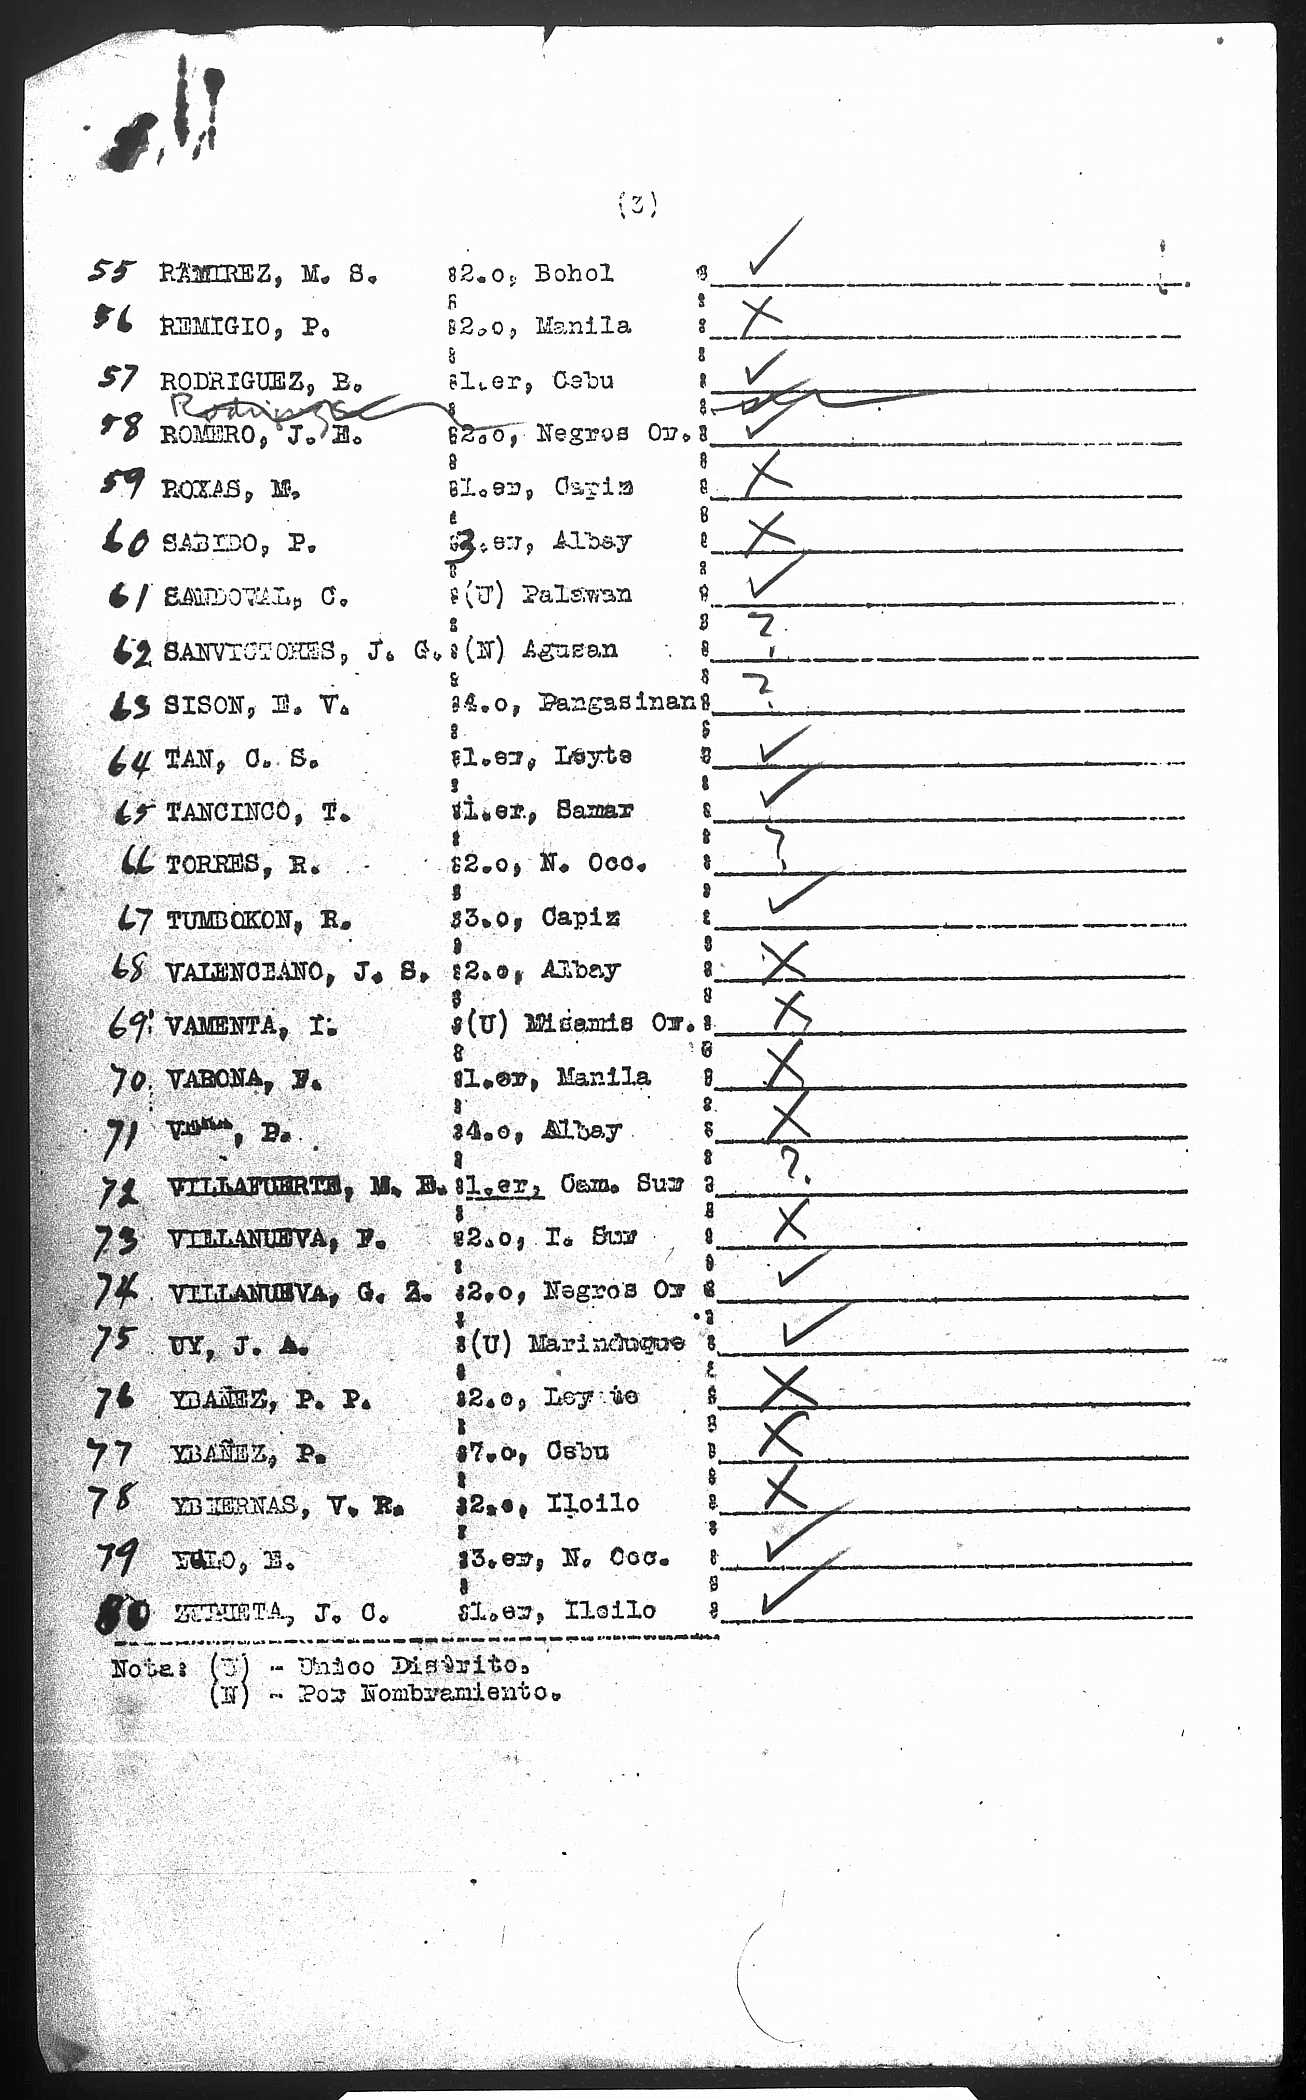 (3)
55 RAMIREZ, M. S. :2.o, Bohol : ✓
56 REMIGIO, P. :2.o, Manila : X
57 RODRIGUEZ, E. :1.er, Cebu : ✓
Rodriguez
58 ROMERO, J. E. :2.o, Negros Or. : ✓
59 ROXAS, M. :1.er, Capiz : X
60 SABIDO, P. :3.er, Albay : X
61 SANDOVAL, C. :(U) Palawan : ✓
62 SANVICTORES, J. G. :(N) Agusan : ?
63 SISON, E. V. :4.o, Pangasinan : ?
64 TAN, C. S. :1.er, Leyte : ✓
65 TANCINCO, T. :1.er, Samar : ✓
66 TORRES, R. :2.o, N. Occ. : ?
67 TUMBOKON, R. :3.o, Capiz : ✓
68 VALENCEANO, J. S. :2.o, Albay : X
69 VAMENTA, I. :(U) Misamis Or. : X
70 VARONA, F. :1.er, Manila : X
71 P. :4.o, Albay : X
72 VILLAFUERTE, M. E. :1.er, Cam. Sur : ?
73 VILLANUEVA, F. :2.o, I. Sur : X
74 VILLANUEVA, G. Z. :2.o, Negros Or : ✓
75 UY, J. A. :(U) Marinduque : ✓
76 YBAÑEZ, P. P. :2.o, Leyte : X
77 YBAÑEZ, P. :7.o, Cebu : X
78 YBIERNAS, V. R. :2.o, Iloilo : X
79 YULO, E. :3.er, N. Occ. : ✓
80 ZULUETA, J. C. :1.er, Iloilo : ✓
Nota: (U) - Unico Distrito.
(N) - Por Nombramiento.